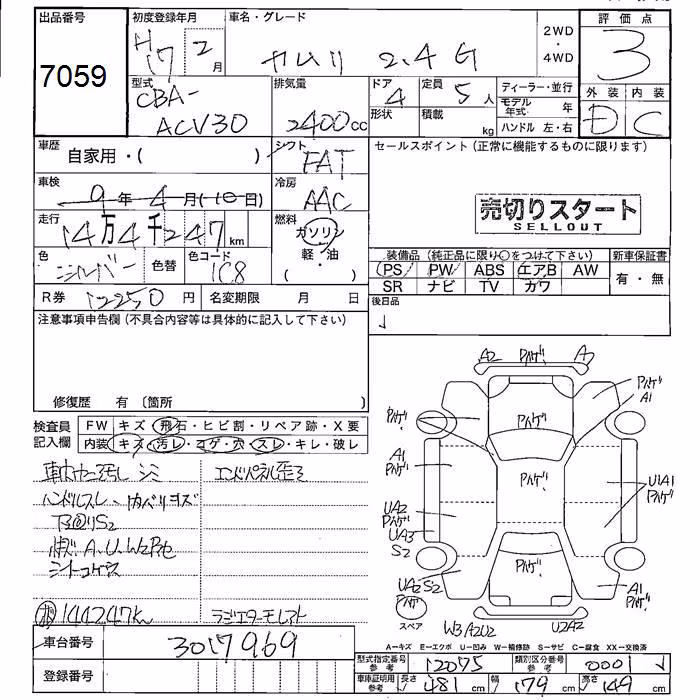 出品番号
7059
初度登録年月
H17 2月
車名・グレード
カムリ 2.4 G
2WD
・
4WD
評価点
3
外装 内装
D C
型式
CBA-
ACV30
排気量
2400cc
ドア
4
形状
定員
5人
積載
kg
ディーラー・並行
モデル年式 年
ハンドル 左・右
車歴
自家用・( )
シフト
FAT
セールスポイント (正常に機能するものに限ります)
車検
9年 4月(-10-日)
冷房
AAC
売切りスタート
SELLOUT
走行
14万4千247km
燃料
ガソリン
・
軽・油
・
( )
色
シルバー
色替
色コード
1C8
装備品 (純正品に限り○をつけて下さい)
新車保証書
PS PW ABS エアB AW
SR ナビ TV カワ
有・無
R券 12250円
名変期限 月 日
後日品
注意事項申告欄 (不具合内容等は具体的に記入して下さい)
修復歴 有 〔箇所 〕
検査員
記入欄
FW キズ・飛石・ヒビ割・リペア跡・X要
内装 キズ・汚レ・コゲ・穴・スレ・キレ・破レ
シミ
エンドパネル歪ミ
ハンドルスレ
下回りS2
A.U.W2P他
シートコゲ
144247k
車台番号
3017969
登録番号
A2 Pハゲ A
Pハゲ
A1
Pハゲ
Pハゲ
A1
Pハゲ
Pハゲ
U1A1
Pハゲ
UA2
Pハゲ
UA3
S2
Pハゲ
UA2S2
Pハゲ
A1
Pハゲ
スペア
W3A2U2
U2A2
A−キズ E−エクボ U−凹み W−補修跡 S−サビ C−腐食 XX−交換済
型式指定番号
参考
12075
類別区分番号
参考
0001
車庫証明用
参考
長さ 481cm
幅 179cm
高さ 149cm